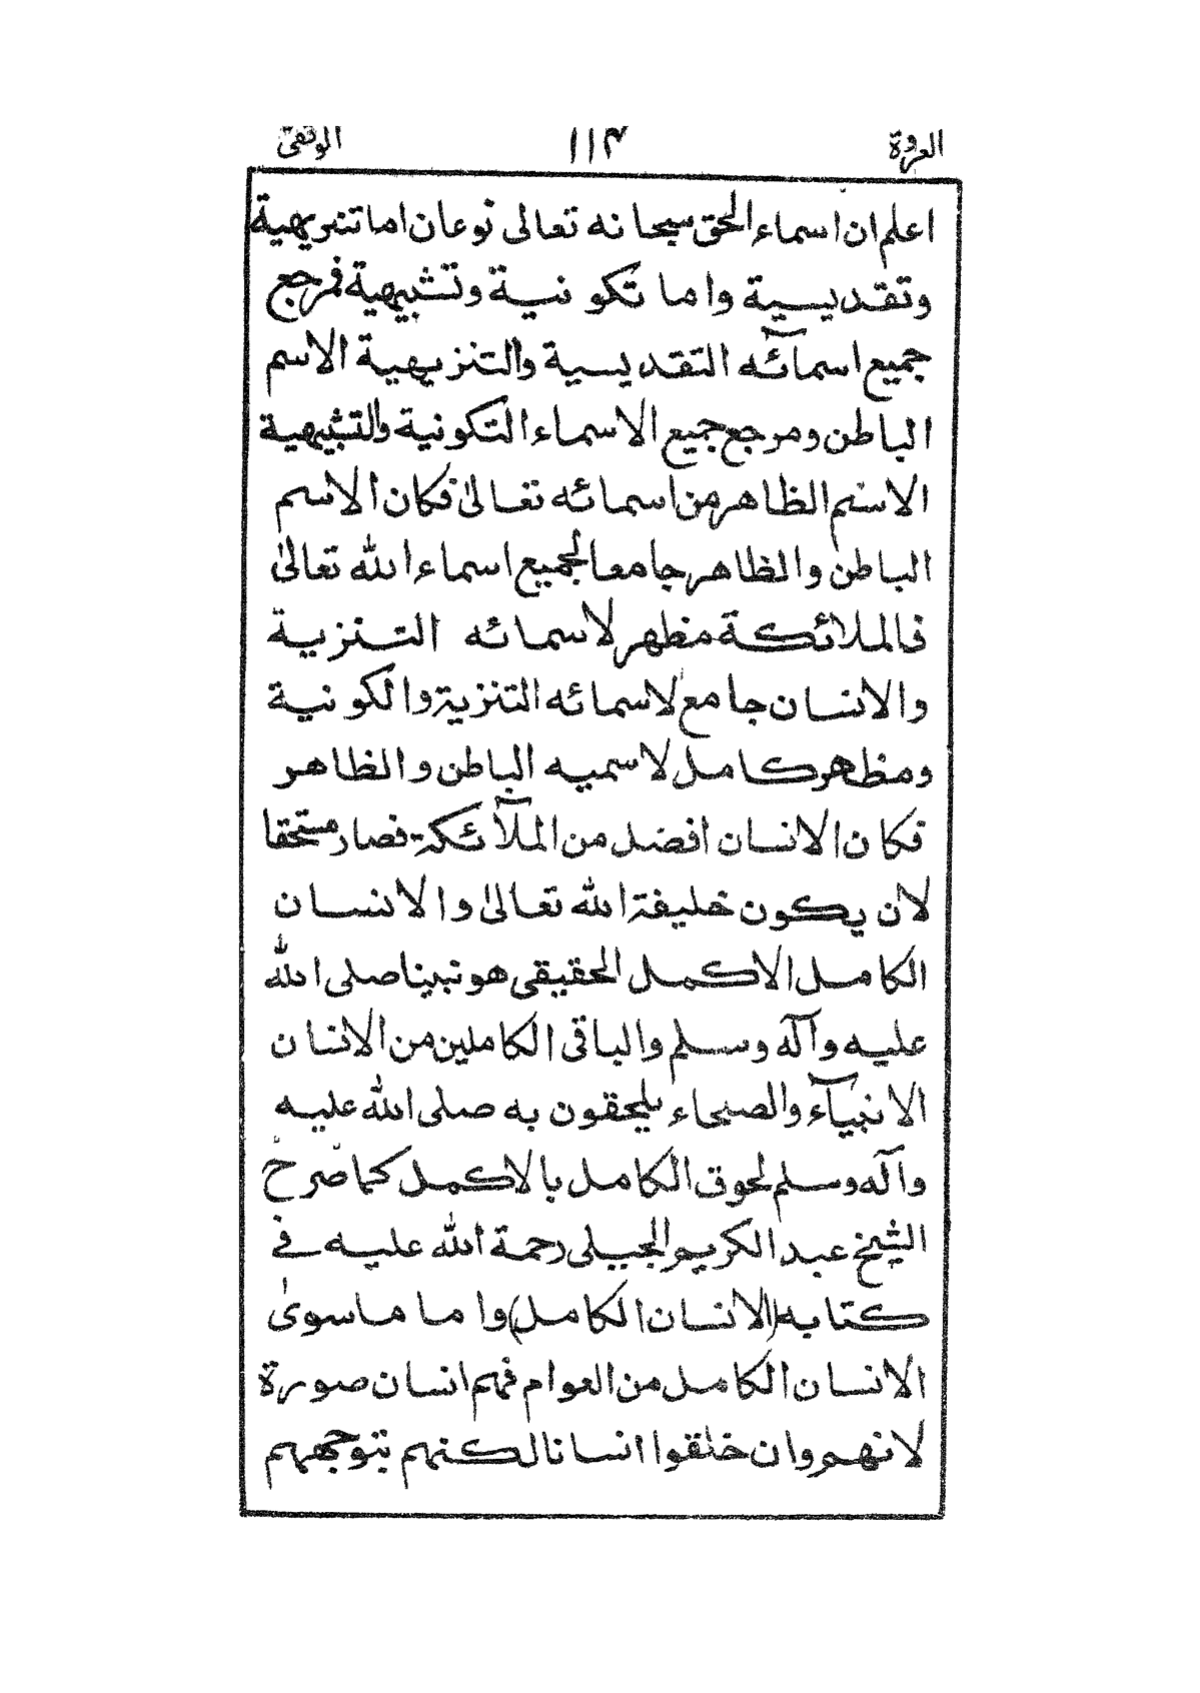 العروة ١١٤ الوثقى
اعلم ان اسماء الحق سبحانه تعالى نوعان اما تنزيهية
وتقديسية واما تكونية وتشبيهية فمرجع
جميع اسمآئه التقديسية والتنزيهية الاسم
الباطن ومرجع جميع الاسماء التكونية والتشبيهية
الاسم الظاهر من اسمائه تعالىٰ فكان الاسم
الباطن والظاهر جامعا لجميع اسماء الله تعالىٰ
فالملائكة مظهر لاسمائه التنزية
والانسان جامع لاسمائه التنزية والكونية
ومظهر كامل لاسميه الباطن والظاهر
فكان الانسان افضل من الملآئكة فصار مستحقا
لان يكون خليفة الله تعالىٰ والانسان
الكامل الاكمل الحقيقى هو نبينا صلى الله
عليه وآله وسلم والباقى الكاملين من الانسان
الانبيآء والصلحاء يلحقون به صلى الله عليه
وآله وسلم لحوق الكامل بالاكمل كما صرح
الشيخ عبد الكريم الجيلى رحمة الله عليه في
كتابه (الانسان الكامل) واما ماسوىٰ
الانسان الكامل من العوام فهم انسان صورة
لانهم وان خلقوا انسانا لكنهم بتوجههم